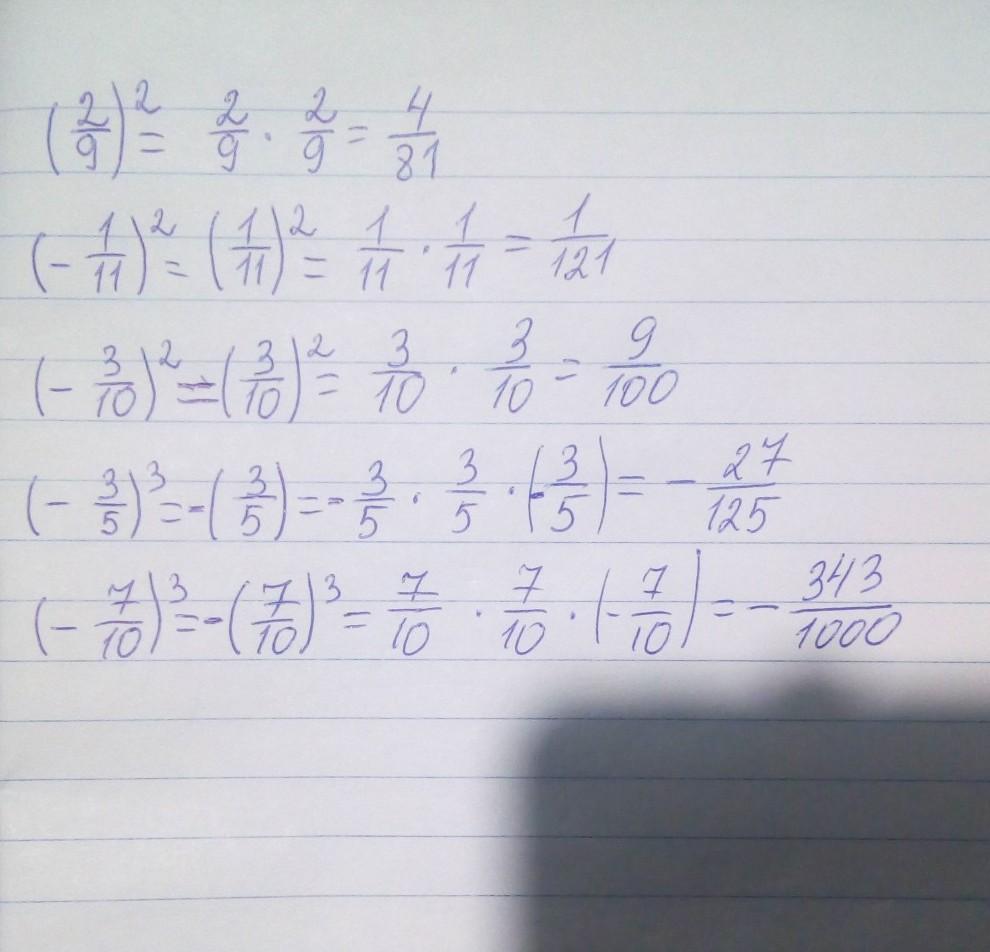 (2/9)² = 2/9 · 2/9 = 4/81
(- 1/11)² = (1/11)² = 1/11 · 1/11 = 1/121
(- 3/10)² = (3/10)² = 3/10 · 3/10 = 9/100
(- 3/5)³ = -(3/5) = - 3/5 · 3/5 · (- 3/5) = - 27/125
(- 7/10)³ = -(7/10)³ = 7/10 · 7/10 · (- 7/10) = - 343/1000